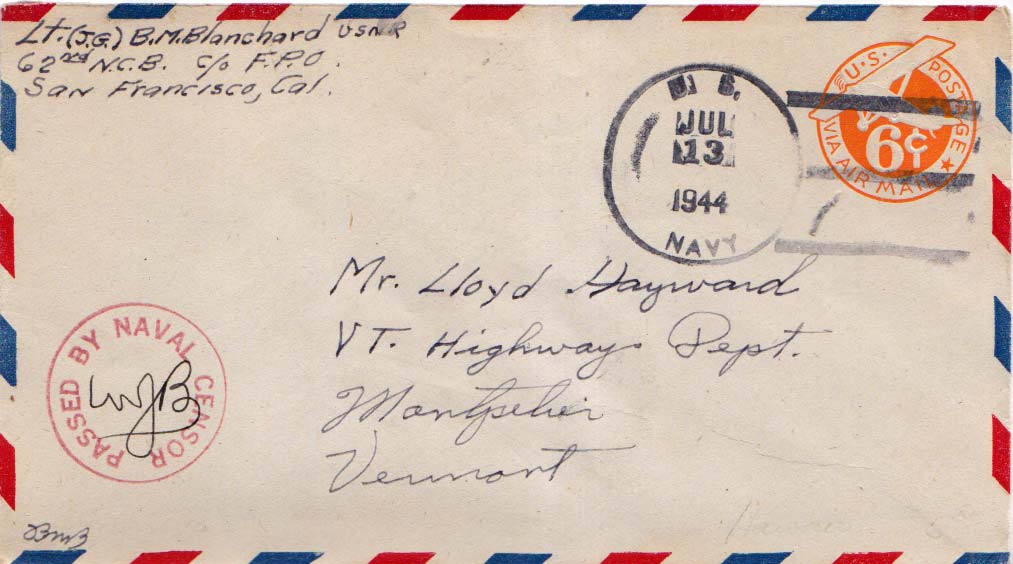 Lt. (J.G.) B.M. Blanchard USNR
62nd N.C.B. c/o F.P.O.
San Francisco, Cal.
U. S.
JUL
13
1944
NAVY
U.S. POSTAGE
6¢
VIA AIR MAIL
Mr. Lloyd Hayward
VT. Highways Dept.
Montpelier
Vermont
PASSED BY NAVAL CENSOR
WJB
BMB